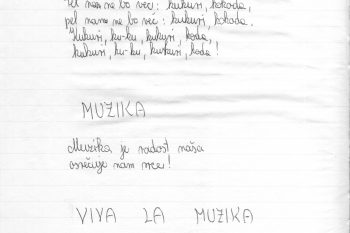 nam ne bo več: kukuri, kokoda,
pel nam ne bo več: kukuri, kokoda.
Kukuri, ku-ku, kukuri, koda,
kukuri, ku-ku, kukuri, koda!
MUZIKA
Muzika je radost naša
osrečuje nam srce!
VIVA LA MUZIKA